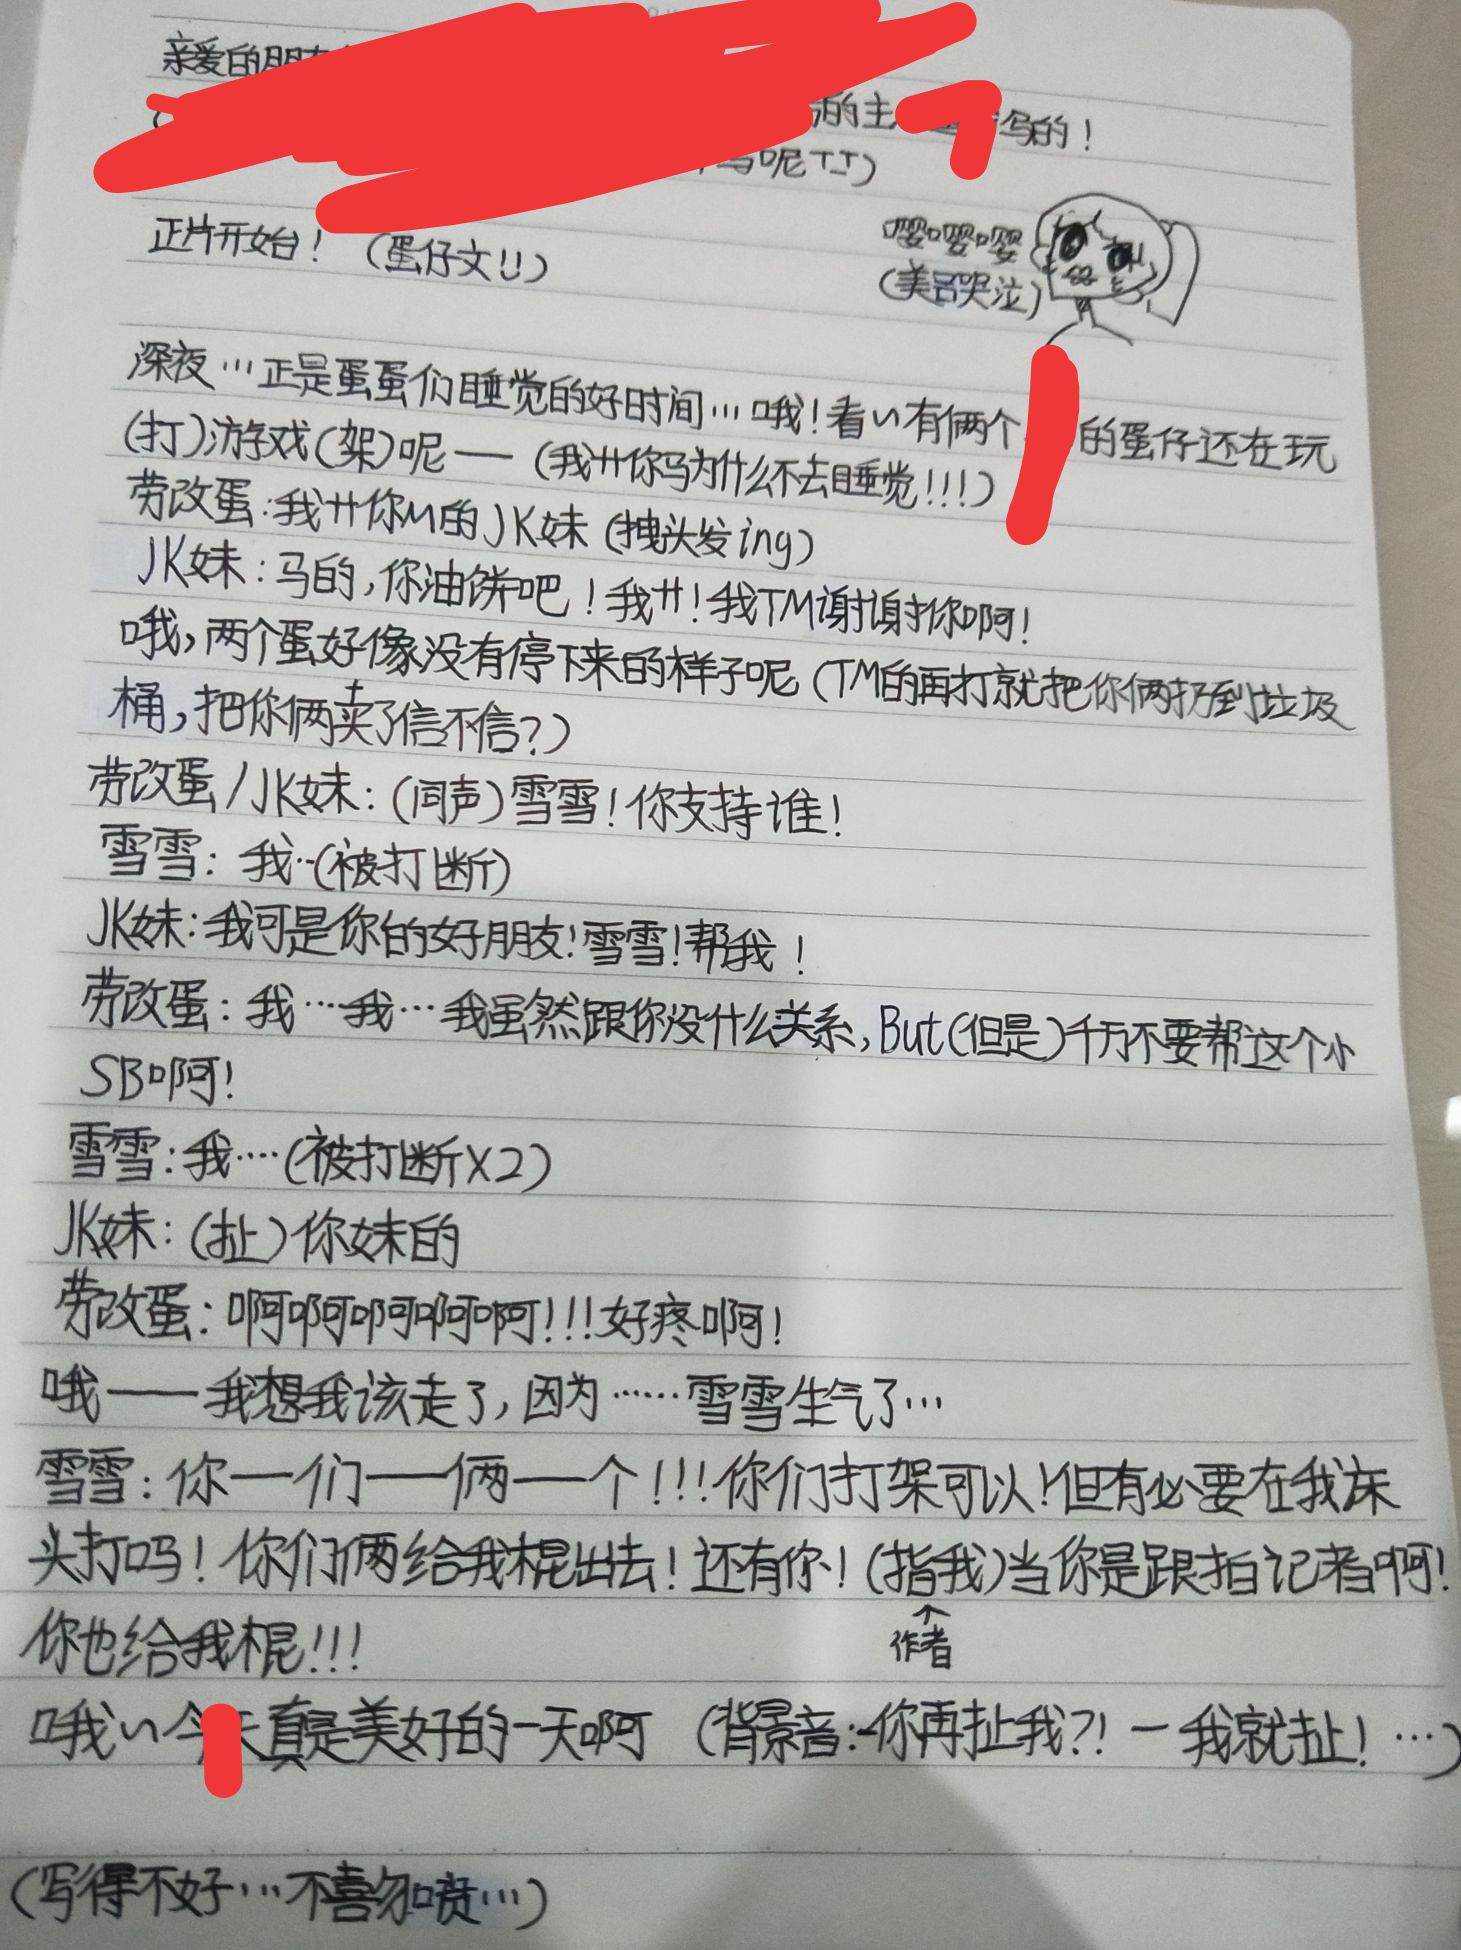 亲爱的朋友
的主 写的！
呢TJT）
正片开始！（蛋仔文!!）
嘤嘤嘤
（美吕哭泣）
深夜…正是蛋蛋们睡觉的好时间…哦！看~有俩个 的蛋仔还在玩
（打）游戏（架）呢——（我艹你马为什么不去睡觉！！！）
劳改蛋：我艹你M的JK妹（拽头发ing）
JK妹：马的，你油饼吧！我艹！我TM谢谢你啊！
哦，两个蛋好像没有停下来的样子呢（TM的再打就把你俩扔到垃圾
桶，把你俩卖了信不信？）
劳改蛋/JK妹：（同声）雪雪！你支持谁！
雪雪：我…（被打断）
JK妹：我可是你的好朋友！雪雪！帮我！
劳改蛋：我…我…我虽然跟你没什么关系，But（但是）千万不要帮这个小
SB啊！
雪雪：我…（被打断X2）
JK妹：（扯）你妹的
劳改蛋：啊啊啊啊啊！！！好疼啊！
哦——我想我该走了，因为……雪雪生气了…
雪雪：你—们—俩—个！！！你们打架可以！但有必要在我床
头打吗！你们俩给我棍出去！还有你！（指我）当你是跟拍记者啊！
作者
你也给我棍！！！
哦~今天真是美好的一天啊（背景音：你再扯我？！—我就扯！…）
（写得不好…不喜勿喷…）